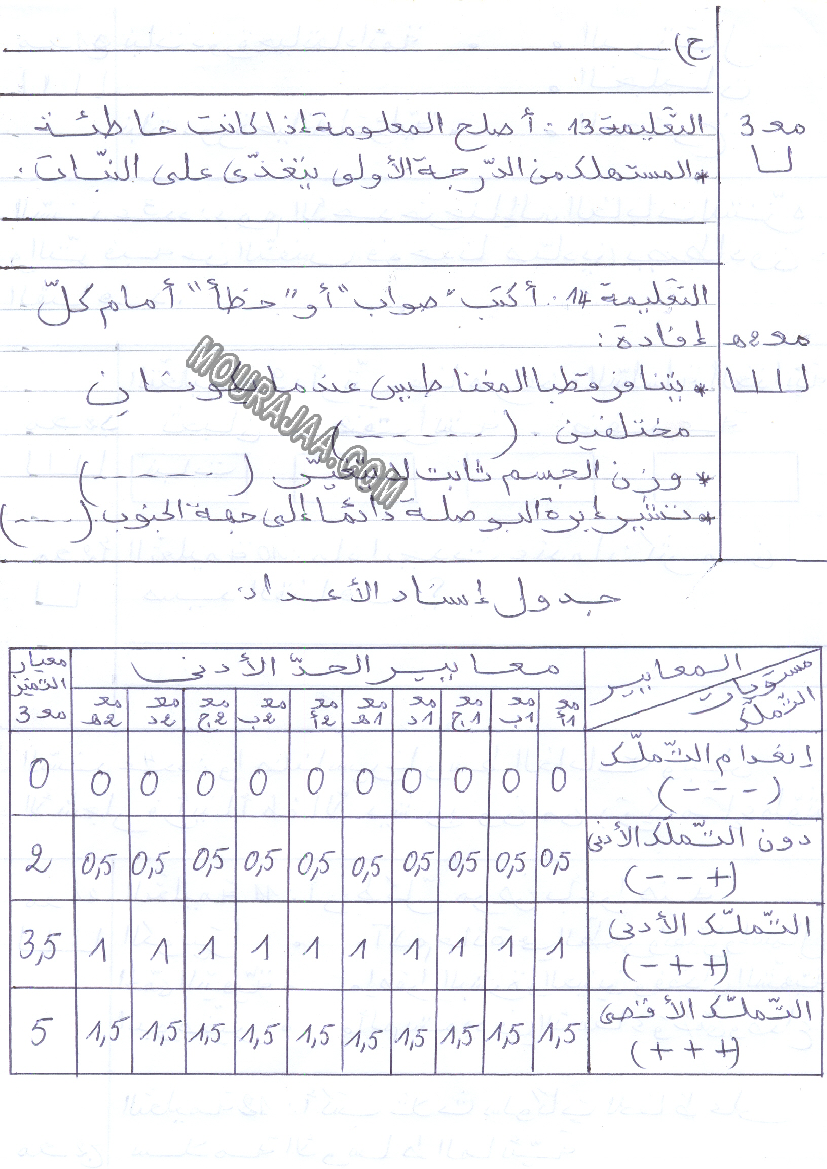 ج)
التعليمة 13 : أصلح المعلومة إذا كانت خاطئة
مع 3
* المستهلك من الدّرجة الأولى يتغذّى على النبّات .
التعليمة 14 : أكتب "صواب" أو "خطأ" أمام كلّ
إفادة :
مع 2هـ
* يتنافر قطبا المغناطيس عندما يكونان
مختلفين . (-----)
* وزن الجسم ثابت لا يتغيّر (------)
* تشير إبرة البوصلة دائما إلى جهة الجنوب. (---)
MOURAJAA.COM
جدول إسناد الأعداد:
المعايير
مستويات التملّك
معايير الحدّ الأدنى
معيار التميّز مع 3
مع 1أ مع 1ب مع 1ج مع 1د مع 1هـ مع 2أ مع 2ب مع 2ج مع 2د مع 2هـ
إنعدام التّملّك (---) 0 0 0 0 0 0 0 0 0 0 0
دون التّملّك الأدنى (+--) 0,5 0,5 0,5 0,5 0,5 0,5 0,5 0,5 0,5 0,5 2
التّملّك الأدنى (++-) 1 1 1 1 1 1 1 1 1 1 3,5
التّملّك الأقصى (+++) 1,5 1,5 1,5 1,5 1,5 1,5 1,5 1,5 1,5 1,5 5